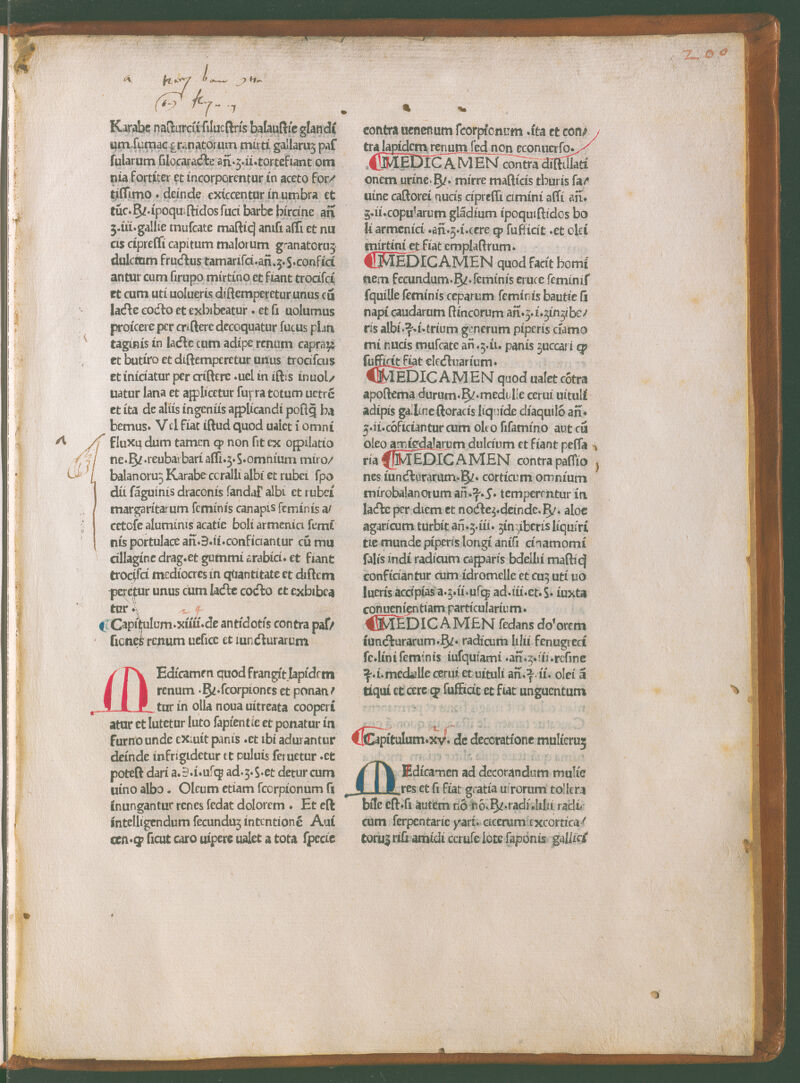 200
Karabe nasturcii siluestris balaustie glandi
um sumac granatorum mirti gallaruꝫ pas
sularum silocaracte añ.ʒ.ii.torrefiant om
nia fortiter et incorporentur in aceto for/
tissimo . deinde exiccentur in umbra et
tūc.℞.ipoquistidos suci barbe hircine añ
ʒ.iii.gallie muscate mastiꝗ anisi assi et nu
cis cipressi capitum malorum granatoruꝫ
dulcium fructus tamarisci.añ.ʒ.s.confici
antur cum sirupo mirtino et fiant trocisci
et cum uti uolueris distemperetur unus cū
lacte cocto et exhibeatur . et si uolumus
proicere per cristere decoquatur sucus plan
taginis in lacte cum adipe renum capraꝫ
et butiro et distemperetur unus trociscus
et iniciatur per cristere .uel in istis inuol/
uatur lana et applicetur supra totum uētrē
et ita de aliis ingeniis applicandi postꝗ ha
bemus. Vel fiat istud quod ualet ī omni
fluxu dum tamen ꝙ non sit ex oppilatio
ne.℞.reubarbari assi.ʒ.s.omnium miro/
balanoruꝫ Karabe coralli albi et rubei spo
dii sāguinis draconis sandal' albi et rubei
margaritarum seminis canapis seminis a/
cetose aluminis acatie boli armenici semi
nis portulace añ.℈.ii.conficiantur cū mu
cillagine drag.et gummi arabici. et fiant
trocisci mediocres in quantitate et distem
peretur unus cum lacte cocto et exhibea
tur .
Capitulum.xiiii.de antidotis contra pas/
siones renum uesice et iuncturarum
MEdicamen quod frangit lapidem
renum .℞.scorpiones et ponan/
tur in olla noua uitreata cooperi
atur et lutetur luto sapientie et ponatur in
furno unde exiuit panis .et ibi adurantur
deinde infrigidetur et puluis seruetur .et
potest dari a.℈.i.usꝗ ad.ʒ.s.et detur cum
uino albo . Oleum etiam scorpionum si
inungantur renes sedat dolorem . Et est
intelligendum secunduꝫ intentionē Aui
cen.ꝙ sicut caro uipere ualet a tota specie
contra uenenum scorpionum .ita et con/
tra lapidem renum sed non econuerso.
MEDICAMEN contra distillati
onem urine.℞. mirre masticis thuris sa/
uine castorei nucis cipressi cimini assi añ.
ʒ.ii.copularum glādium ipoquistidos bo
li armenici .añ.ʒ.i.cere ꝙ sufficit .et olei
mirtini et fiat emplastrum.
MEDICAMEN quod facit homi
nem fecundum.℞.seminis eruce seminis
squille seminis ceparum seminis bautie si
napi caudarum stincorum añ.ʒ.i.zinzibe/
ris albi.℥.i.trium generum piperis cīamo
mi nucis muscate añ.ʒ.ii. panis zuccari ꝙ
sufficit fiat electuarium.
MEDICAMEN quod ualet cōtra
apostema durum.℞.medulle cerui uituli
adipis galline storacis liquide diaquilō añ.
ʒ.ii.cōficiantur cum oleo sisamino aut cū
oleo amigdalarum dulcium et fiant pessa
ria MEDICAMEN contra passio
nes iuncturarum.℞. corticum omnium
mirobalanorum añ.℥.s. temperentur in
lacte per diem et nocteꝫ.deinde.℞. aloe
agaricum turbit añ.ʒ.iii. zinziberis liquiri
tie munde piperis longi anisi cinamomi
salis indi radicum capparis bdellii mastiꝗ
conficiantur cum idromelle et cuꝫ uti uo
lueris accipias a.ʒ.ii.usꝗ ad.iii.et.s. iuxta
conuenientiam particularium.
MEDICAMEN sedans dolorem
iuncturarum.℞. radicum lilii fenugreci
se.lini seminis iusquiami .añ.ʒ.iii.resine
℥.i.medulle cerui et uituli añ.℥.ii. olei ā
tiqui et cere ꝙ sufficit et fiat unguentum
Capitulum.xv. de decoratione mulieruꝫ
MEdicamen ad decorandum mulie
res et si fiat gratia uirorum tollera
bile est.si autem nō nō.℞.radi.lilii radi
cum serpentarie yari. cicerum excortica/
toruꝫ risi amidi ceruse lote saponis gallici